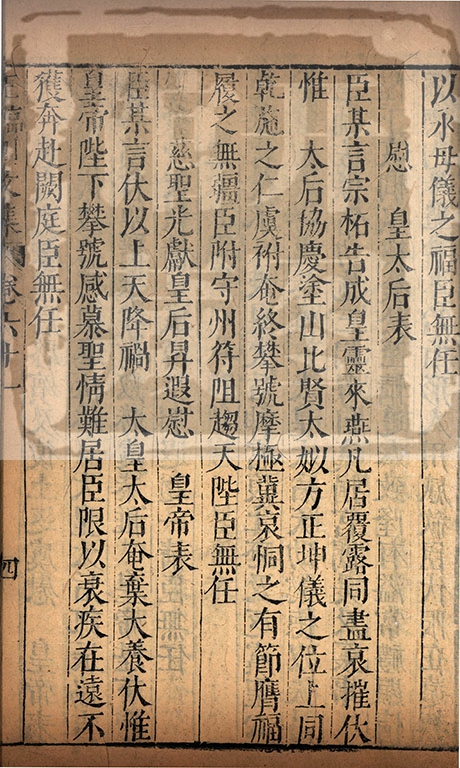 以永母儀之福臣無任
慰　皇太后表
臣某言宗柘告成皇靈來燕凡居覆露同盡哀摧伏
惟　太后協慶塗山比賢太姒方正坤儀之位上同
乾施之仁虞祔奄終攀號摩極冀哀恫之有節膺福
履之無疆臣附守州符阻趨天陛臣無任
慈聖光獻皇后昇遐慰　皇帝表
臣某言伏以上天降禍　太皇太后奄棄大養伏惟
皇帝陛下攀號感慕聖情難居臣限以衰疾在遠不
獲奔赴闕庭臣無任
臨川文集　卷六十一
四